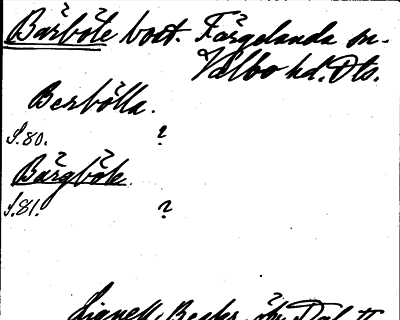 Bärböle bost. Färgelanda sn.
Valbo hd. Dls.
Berbölla.
S. 80. ?
Bärgbök
S. 81. ?
Lignell, Beskr. öfv. Dal II